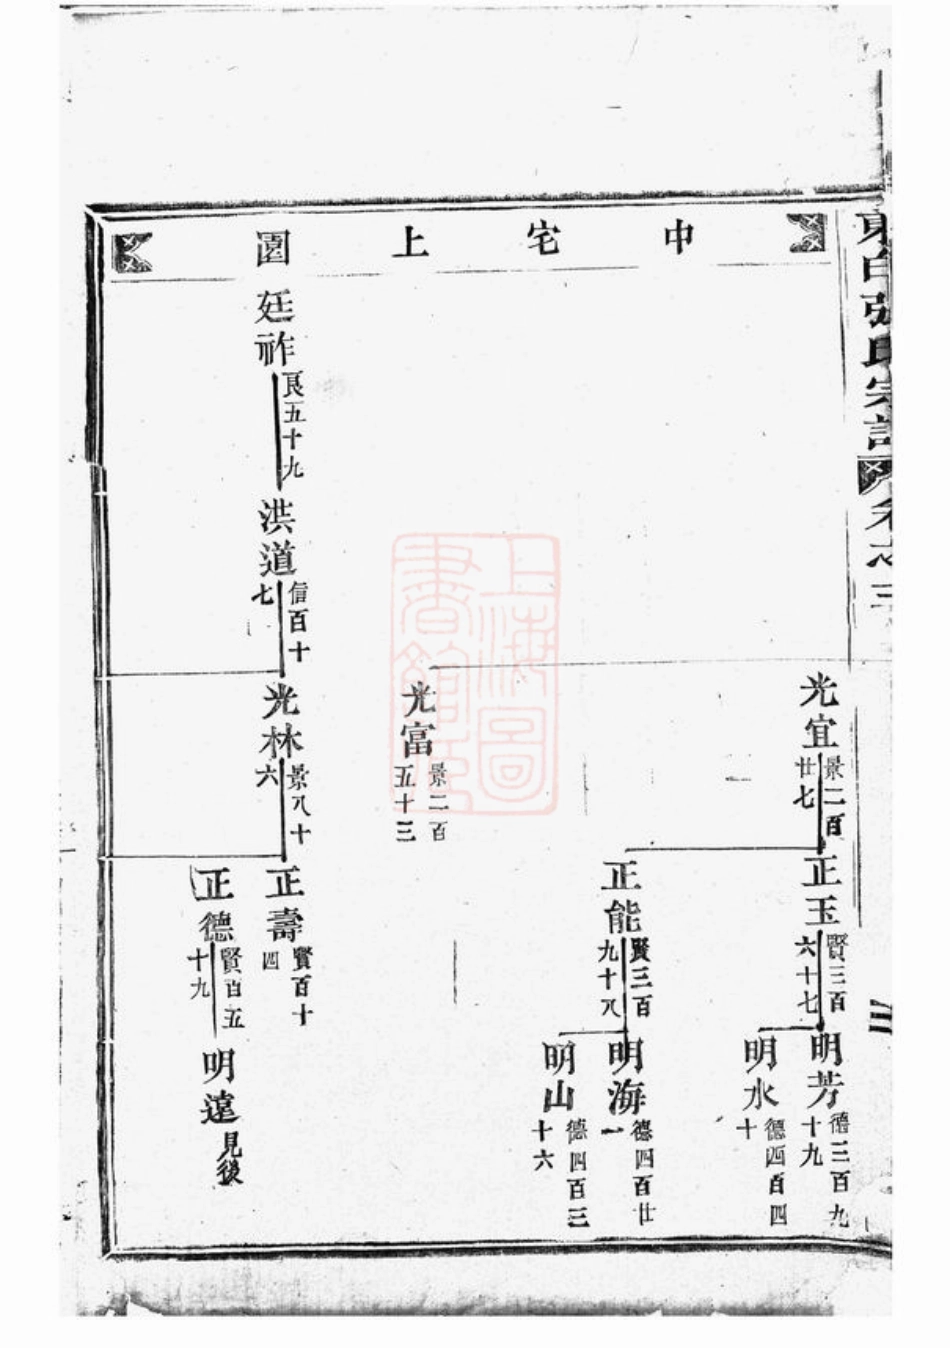 東白張氏宗譜
卷之三
中宅上園
光宜
景二百
廿七
正玉
賢三百
六十七
明芳
德三百九
十九
明水
德四百四
十
正能
賢三百
九十八
明海
德四百廿
一
明山
德四百三
十六
光富
景二百
五十三
廷祚
良五十九
洪道
信百十
七
光林
景八十
六
正壽
賢百十
四
正德
賢百五
十九
明遠
見後
上海圖
書館藏